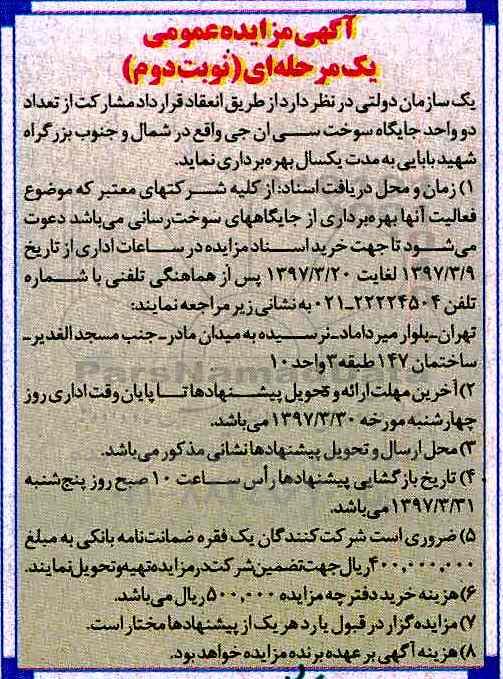 آگهی مزایده عمومی
یک مرحله‌ای (نوبت دوم)
یک سازمان دولتی در نظر دارد از طریق انعقاد قرارداد مشارکت از تعداد
دو واحد جایگاه سوخت سی ان جی واقع در شمال و جنوب بزرگراه
شهید بابایی به مدت یکسال بهره‌برداری نماید.
۱) زمان و محل دریافت اسناد: از کلیه شرکتهای معتبر که موضوع
فعالیت آنها بهره‌برداری از جایگاههای سوخت‌رسانی می‌باشد دعوت
می‌شود تا جهت خرید اسناد مزایده در ساعات اداری از تاریخ
۱۳۹۷/۳/۹ لغایت ۱۳۹۷/۳/۲۰ پس از هماهنگی تلفنی با شماره
تلفن ۲۲۲۲۴۵۰۴-۰۲۱ به نشانی زیر مراجعه نمایند:
تهران-بلوار میرداماد-نرسیده به میدان مادر-جنب مسجد الغدیر-
ساختمان ۱۴۷ طبقه ۳ واحد ۱۰
۲) آخرین مهلت ارائه و تحویل پیشنهادها تا پایان وقت اداری روز
چهارشنبه مورخه ۱۳۹۷/۳/۳۰ می‌باشد.
۳) محل ارسال و تحویل پیشنهادها نشانی مذکور می‌باشد.
۴) تاریخ بازگشایی پیشنهادها رأس ساعت ۱۰ صبح روز پنج‌شنبه
۱۳۹۷/۳/۳۱ می‌باشد.
۵) ضروری است شرکت‌کنندگان یک فقره ضمانت‌نامه بانکی به مبلغ
۴۰۰,۰۰۰,۰۰۰ ریال جهت تضمین شرکت در مزایده تهیه و تحویل نمایند.
۶) هزینه خرید دفترچه مزایده ۵۰۰,۰۰۰ ریال می‌باشد.
۷) مزایده‌گزار در قبول یا رد هر یک از پیشنهادها مختار است.
۸) هزینه آگهی بر عهده برنده مزایده خواهد بود.